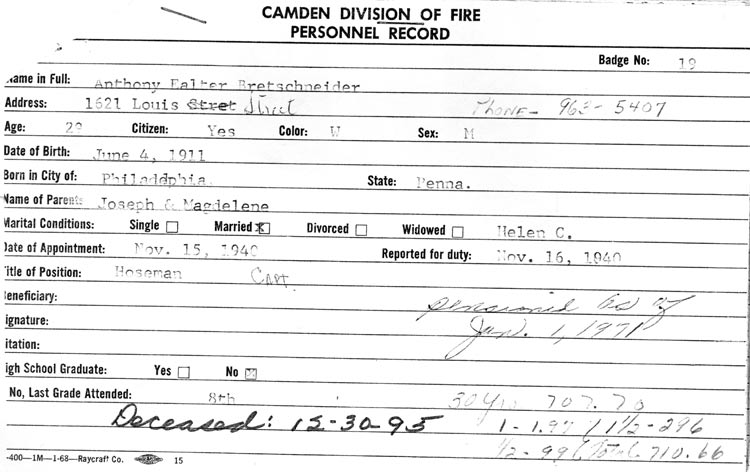 CAMDEN DIVISION OF FIRE
PERSONNEL RECORD
Badge No: 19
ame in Full: Anthony Ealter Bretschneider
Address: 1621 Louis Stret Street Phone- 963-5407
Age: 29 Citizen: Yes Color: W Sex: M
Date of Birth: June 4, 1911
Born in City of: Philaddphia. State: Penna.
Name of Parents Joseph & Magdelene
Marital Conditions: Single Married X Divorced Widowed Helen C.
Date of Appointment: Nov. 15, 1940 Reported for duty: Nov. 16, 1940
Title of Position: Hoseman Capt.
eneficiary: pensioned as of
ignature: Jan. 1, 1971
itation:
igh School Graduate: Yes No X
No, Last Grade Attended: 8th 30 yrs 707.70
Deceased: 12-30-95 1-1.97 / 1 1/2-296
1/2-.99 Total 710.66
-400—1M—1-68—Raycraft Co. 15